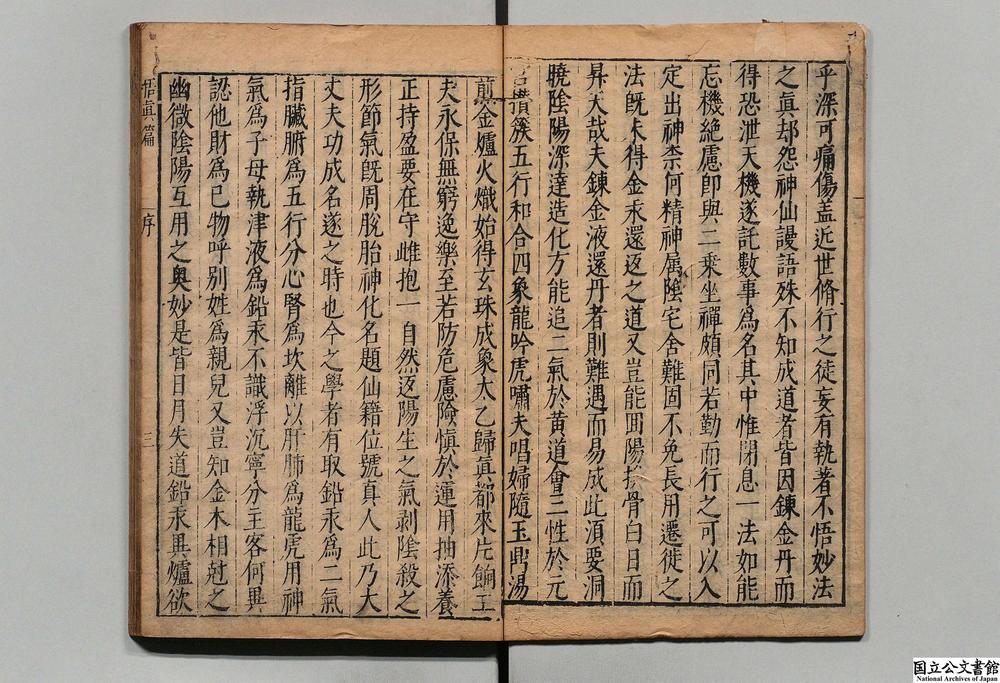 乎深可痛傷盖近世脩行之徒妄有執著不悟妙法
之眞却怨神仙謾語殊不知成道者皆因鍊金丹而
得恐泄天機遂託數事爲名其中惟閉息一法如能
忘機絶慮即與二乘坐禪頗同若勤而行之可以入
定出神柰何精神属陰宅舍難固不免長用遷徙之
法旣未得金汞還返之道又豈能囬陽換骨白日而
昇天哉夫鍊金液還丹者則難遇而易成此湏要洞
曉陰陽深達造化方能追二氣於黄道會三性於元
宮攅簇五行和合四象龍吟虎嘯夫唱婦隨玉鼎湯
煎金爐火熾始得玄珠成象太乙歸眞都來片餉工
夫永保無窮逸樂至若防危慮險愼於運用抽添養
正持盈要在守雌抱一自然返陽生之氣剥陰殺之
形節氣旣周脫胎神化名題仙籍位號真人此乃大
丈夫功成名遂之時也今之學者有取鉛汞爲二氣
指臟腑爲五行分心腎爲坎離以肝肺爲龍虎用神
氣爲子母執津液爲鉛汞不識浮沉寧分主客何異
認他財爲已物呼别姓爲親兒又豈知金木相尅之
幽微陰陽互用之奥妙是皆日月失道鉛汞異爐欲
悟眞篇 序 三
国立公文書館
National Archives of Japan